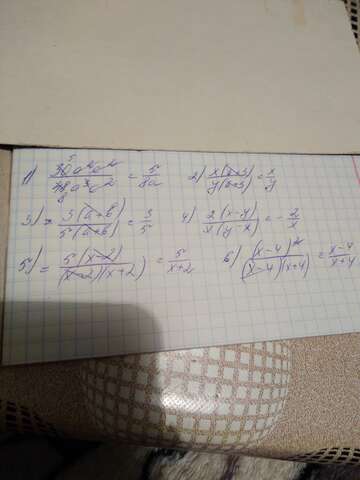 1) 30a²c²/48a³c² = 5/8a 2) x(x+3)/y(x+3) = x/y
3) = 3(a+b)/5(a+b) = 3/5 4) 2(x-y)/x(y-x) = -2/x
5) = 5(x-2)/(x-2)(x+2) = 5/x+2 6) (x-4)²/(x-4)(x+4) = x-4/x+4